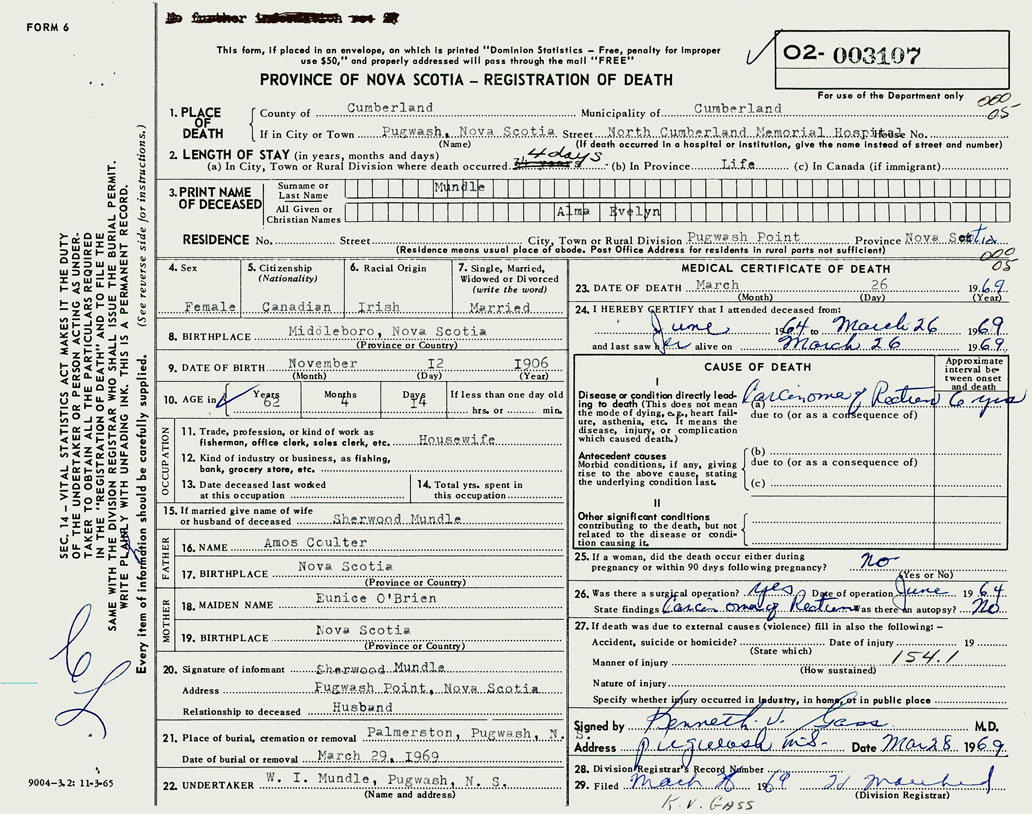 FORM 6
No further information
This form, if placed in an envelope, on which is printed "Dominion Statistics – Free, penalty for improper
use $50," and properly addressed will pass through the mail "FREE"
PROVINCE OF NOVA SCOTIA – REGISTRATION OF DEATH
02- 003107
For use of the Department only
000
05
1. PLACE OF DEATH
County of Cumberland Municipality of Cumberland
If in City or Town Pugwash, Nova Scotia Street North Cumberland Memorial Hospital House No.
(Name) (If death occurred in a hospital or institution, give the name instead of street and number)
2. LENGTH OF STAY (in years, months and days)
(a) In City, Town or Rural Division where death occurred 4 days (b) In Province Life (c) In Canada (if immigrant)
3. PRINT NAME OF DECEASED
Surname or Last Name Mundle
All Given or Christian Names Alma Evelyn
RESIDENCE No. Street City, Town or Rural Division Pugwash Point Province Nova Scotia
(Residence means usual place of abode. Post Office Address for residents in rural parts not sufficient)
000
05
4. Sex
Female
5. Citizenship
(Nationality)
Canadian
6. Racial Origin
Irish
7. Single, Married,
Widowed or Divorced
(write the word)
Married
8. BIRTHPLACE Middleboro, Nova Scotia
(Province or Country)
9. DATE OF BIRTH November I2 I906
(Month) (Day) (Year)
10. AGE in Years 62 Months 4 Days I4 If less than one day old
hrs. or min.
OCCUPATION
11. Trade, profession, or kind of work as
fisherman, office clerk, sales clerk, etc. Housewife
12. Kind of industry or business, as fishing,
bank, grocery store, etc.
13. Date deceased last worked
at this occupation
14. Total yrs. spent in
this occupation
15. If married give name of wife
or husband of deceased Sherwood Mundle
FATHER
16. NAME Amos Coulter
17. BIRTHPLACE Nova Scotia
(Province or Country)
MOTHER
18. MAIDEN NAME Eunice O'Brien
19. BIRTHPLACE Nova Scotia
(Province or Country)
20. Signature of informant Sherwood Mundle
Address Pugwash Point, Nova Scotia
Relationship to deceased Husband
21. Place of burial, cremation or removal Palmerston, Pugwash, N. S.
Date of burial or removal March 29, I969
22. UNDERTAKER W. I. Mundle, Pugwash, N. S.
(Name and address)
MEDICAL CERTIFICATE OF DEATH
23. DATE OF DEATH March 26 1969
(Month) (Day) (Year)
24. I HEREBY CERTIFY that I attended deceased from:
June 1964 to March 26 1969
and last saw her alive on March 26 1969
CAUSE OF DEATH
Approximate
interval be-
tween onset
and death
I
Disease or condition directly lead-
ing to death (This does not mean
the mode of dying, e.g., heart fail-
ure, asthenia, etc. It means the
disease, injury, or complication
which caused death.)
(a) Carcinoma of Rectum 6 yrs
due to (or as a consequence of)
Antecedent causes
Morbid conditions, if any, giving
rise to the above cause, stating
the underlying condition last.
(b)
due to (or as a consequence of)
(c)
II
Other significant conditions
contributing to the death, but not
related to the disease or condi-
tion causing it.
25. If a woman, did the death occur either during
pregnancy or within 90 days following pregnancy? No
(Yes or No)
26. Was there a surgical operation? yes Date of operation June 1964
State findings Carcinoma of Rectum Was there an autopsy? No
27. If death was due to external causes (violence) fill in also the following: –
Accident, suicide or homicide? Date of injury 19
(State which)
Manner of injury 154.1
(How sustained)
Nature of injury
Specify whether injury occurred in industry, in home, or in public place
Signed by Kenneth V. Gass M.D.
Address Pugwash N.S. Date Mar 28 1969
28. Division Registrar's Record Number
29. Filed 19
(Division Registrar)
K. V. GASS
SEC. 14 – VITAL STATISTICS ACT MAKES IT THE DUTY
OF THE UNDERTAKER OR PERSON ACTING AS UNDER-
TAKER TO OBTAIN ALL THE PARTICULARS REQUIRED
IN THE "REGISTRATION OF DEATH" AND TO FILE THE
SAME WITH THE DIVISION REGISTRAR WHO SHALL ISSUE THE BURIAL PERMIT.
WRITE PLAINLY WITH UNFADING INK. THIS IS A PERMANENT RECORD.
Every item of information should be carefully supplied. (See reverse side for instructions.)
9004-3.2: 11-3-65